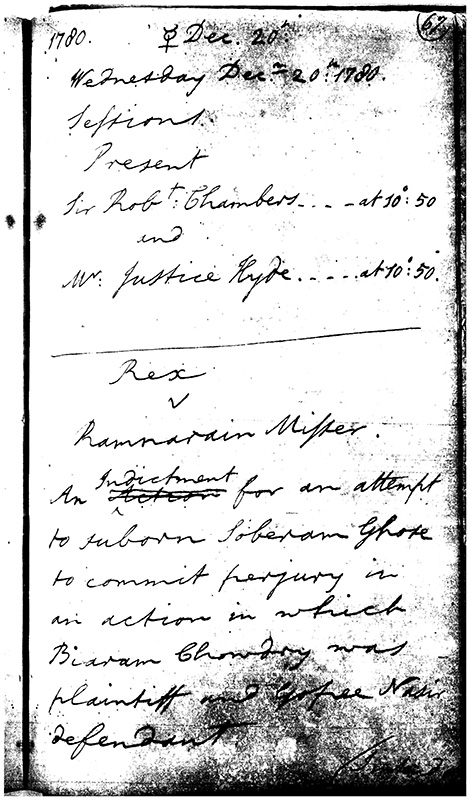 67
1780. ☿ Dec. 20th
Wednesday Decr 20th 1780.
Sessions
Present
Sir Robt: Chambers - - - at 10°: 50
and
Mr. Justice Hyde - - - - - at 10°: 50.
Rex
v
Ramnarain Misser.
An Indictment for an attempt
to suborn Soberam Ghose
to commit perjury in
an action in which
Biaram Chowdry was
plaintiff and Gopee
defendant